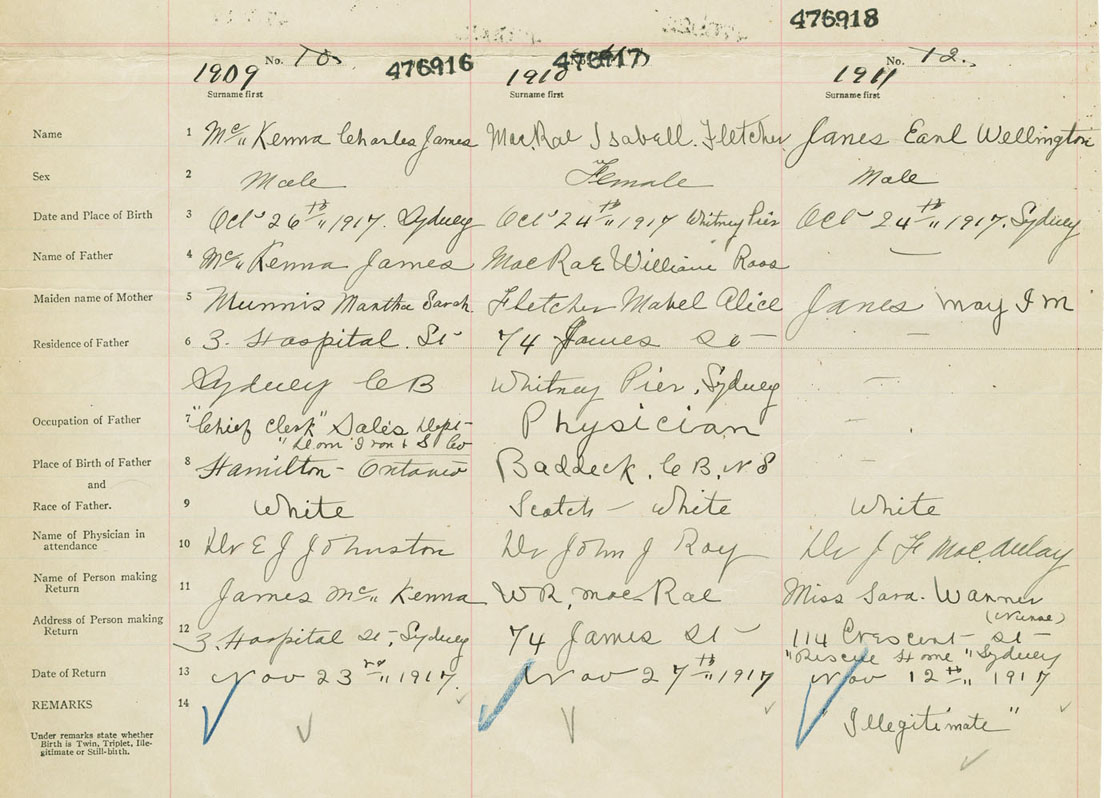 476918
No. 10. No. 12.
1909 476916 1910 476917 1911
Surname first Surname first Surname first
Name 1 Mc" Kenna Charles James MacRae Isabell. Fletcher Janes Earl Wellington
Sex 2 Male Female Male
Date and Place of Birth 3 Oct 26th" 1917. Sydney Oct 24th" 1917 Whitney Pier Oct 24th" 1917. Sydney
Name of Father 4 Mc" Kenna James MacRae William Ross —
Maiden name of Mother 5 Munnis Martha Sarah Fletcher Mabel Alice Janes May I M
Residence of Father 6 3. Hospital. St 74 James St — —
Sydney C B Whitney Pier, Sydney —
Occupation of Father 7 "Chief Clerk" Sales Dept Physician -
"Dom Iron & S Co
Place of Birth of Father 8 Hamilton - Ontario Baddeck, C B, N S -
and
Race of Father. 9 White Scotch - White White
Name of Physician in
attendance 10 Dr E J Johnston Dr John J Roy Dr J F Macaulay
Name of Person making
Return 11 James Mc" Kenna W R, Mac Rae Miss Sara. Wanner
(Nurse)
Address of Person making
Return 12 3. Hospital St, Sydney 74 James St — 114 Crescent St —
"Rescue Home" Sydney
Date of Return 13 Nov 23rd" 1917. Nov 27th" 1917 Nov 12th" 1917
REMARKS 14 "Illegitimate"
Under remarks state whether
Birth is Twin, Triplet, Ille-
gitimate or Still-birth.